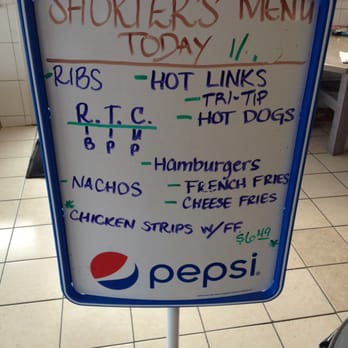 SHORTER'S MENU
TODAY
-RIBS
-HOT LINKS
-TRI-TIP
R. T. C.
-HOT DOGS
B P P
-Hamburgers
-NACHOS
-FRENCH FRIES
-CHEESE FRIES
*CHICKEN STRIPS W/FF
$6.49
pepsi